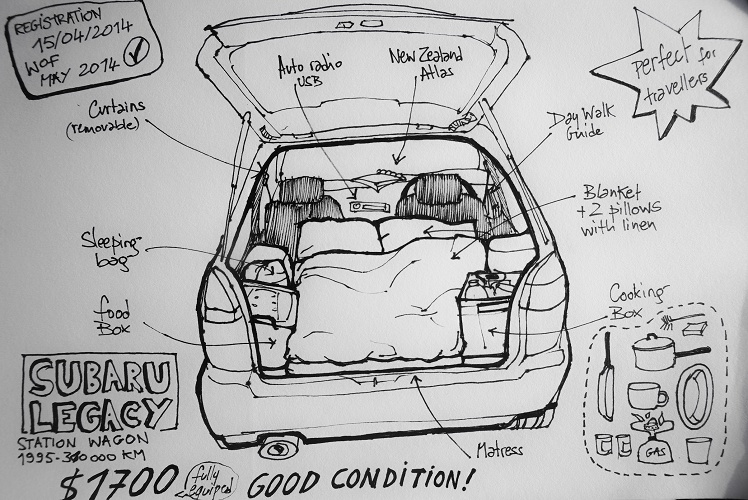 REGISTRATION
15/04/2014
WOF
MAY 2014
Auto radio
USB
New Zealand
Atlas
Perfect for
travellers
Curtains
(removable)
Day Walk
Guide
Blanket
+2 pillows
with linen
Sleeping
bag
food
Box
Cooking
Box
SUBARU
LEGACY
STATION WAGON
1995-310000 KM
GAS
Matress
$1700
fully
equiped
GOOD CONDITION!